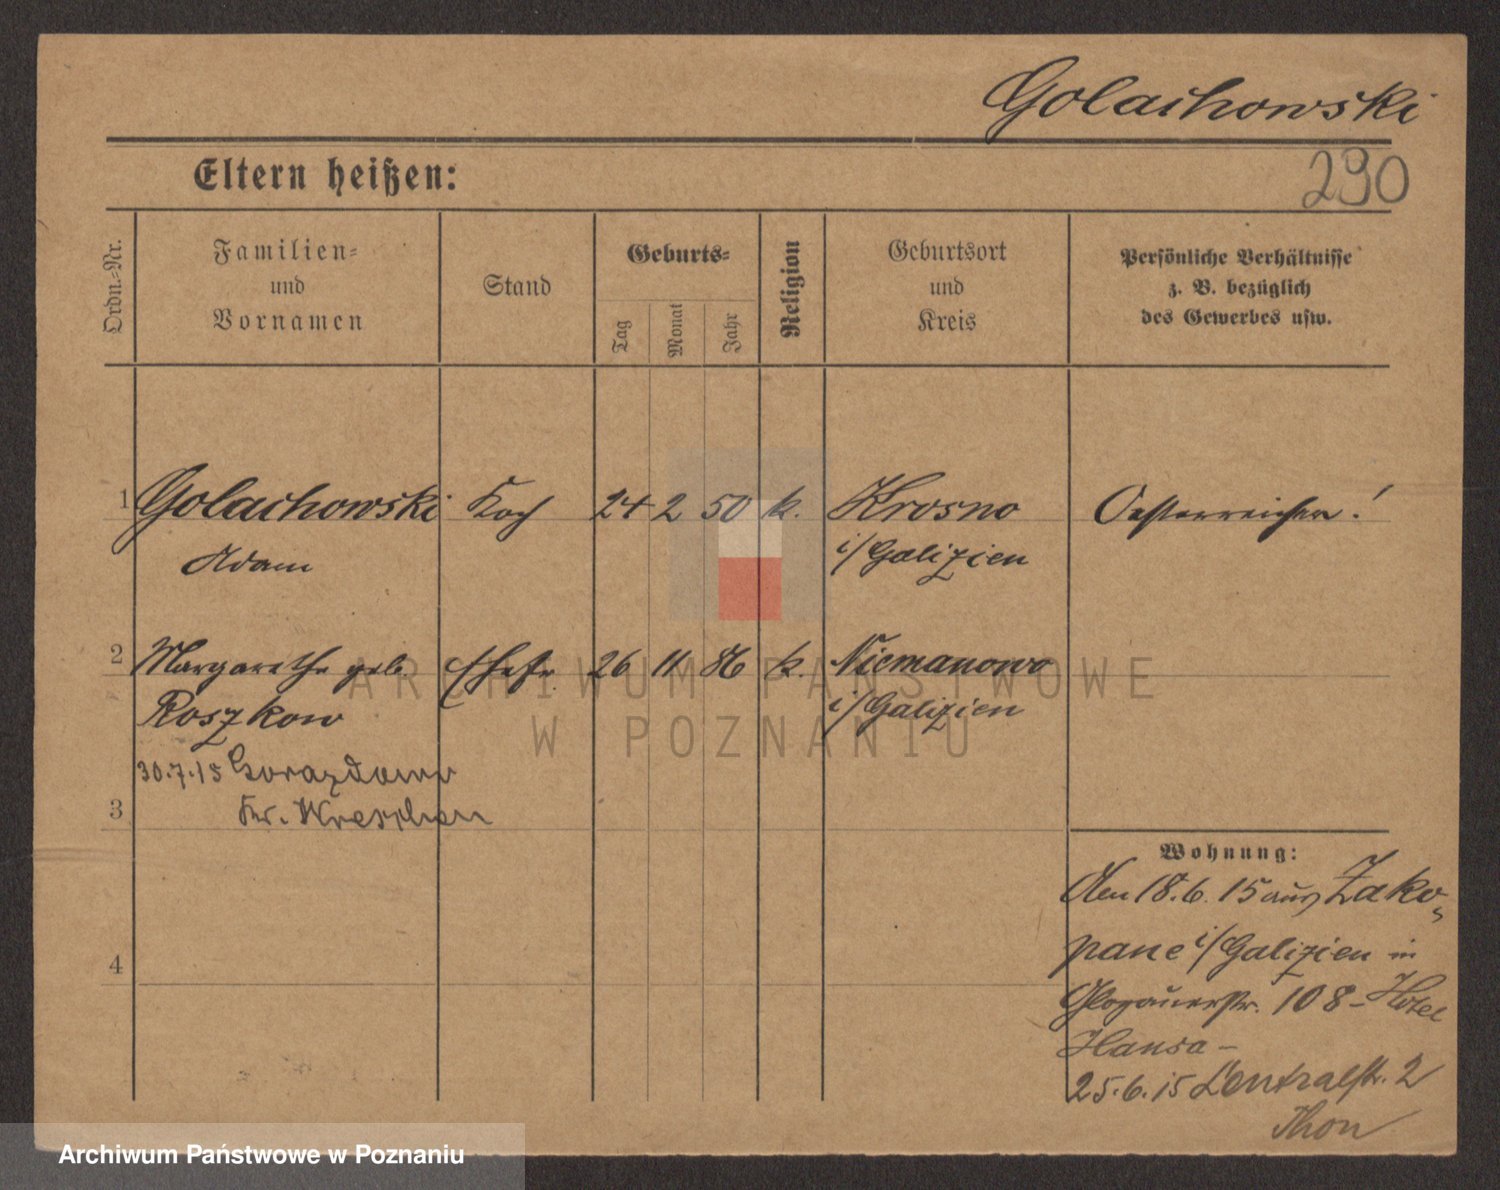 Golachowski
290
Eltern heißen:
Ordn.-Nr.
Familien-
und
Vornamen
Stand
Geburts-
Tag
Monat
Jahr
Religion
Geburtsort
und
Kreis
Persönliche Verhältnisse
z. B. bezüglich
des Gewerbes usw.
1 Golachowski Koch 24 2 50 k. Krosno Oesterreicher!
Adam i/Galizien
2 Margarethe geb. Ehefr. 26 11 86 k. Niemanowo
Roszkow i/Galizien
30.7.15 Gorazdowo
3 Kr. Wreschen
4
Wohnung:
Den 18.6.15 aus Zako-
pane i/Galizien in
Glogauerstr. 108 - Hotel
Hansa -
25.6.15 Centralstr. 2
Thon
ARCHIWUM PAŃSTWOWE
W POZNANIU
Archiwum Państwowe w Poznaniu